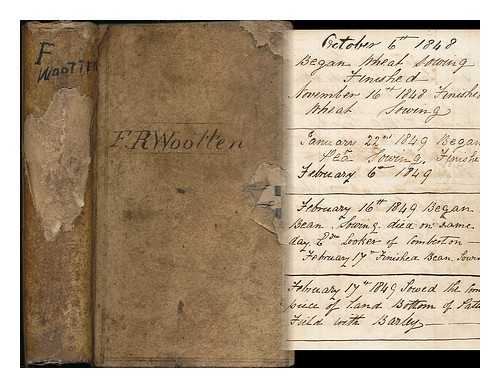 F
Wootten
F. R. Wootten
October 6th 1848
Began Wheat Sowing
Finished
November 16th 1848 Finished
Wheat Sowing
January 22nd 1849 Began
Pea Sowing. Finishe
February 6th 1849
February 16th 1849 Began
Bean Sowing died on same
day Looker of Comberton
February 17th Finished Bean Sowin
February 17th 1849 Sowed the
piece of Land Bottom of
Field with Barley